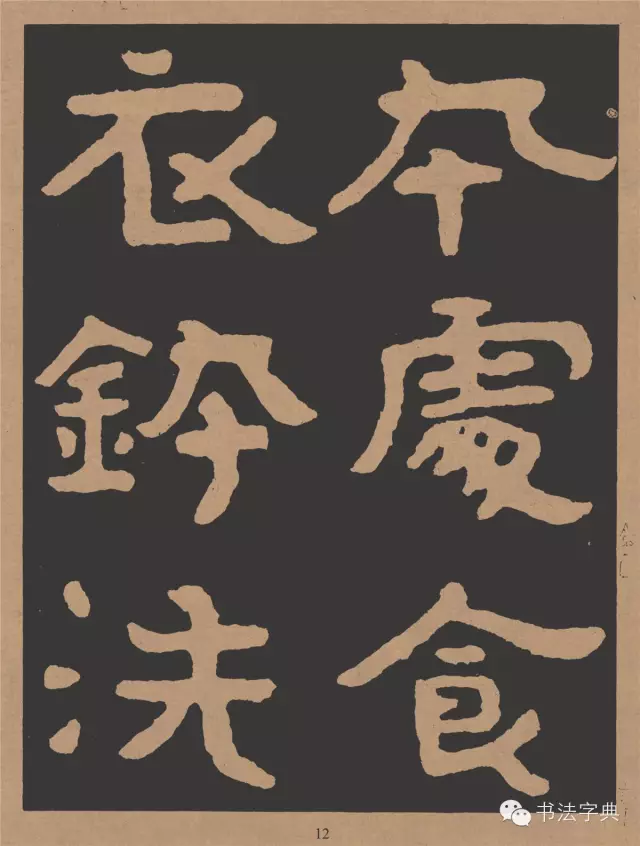 本處食
衣鉢洗
12
书法字典